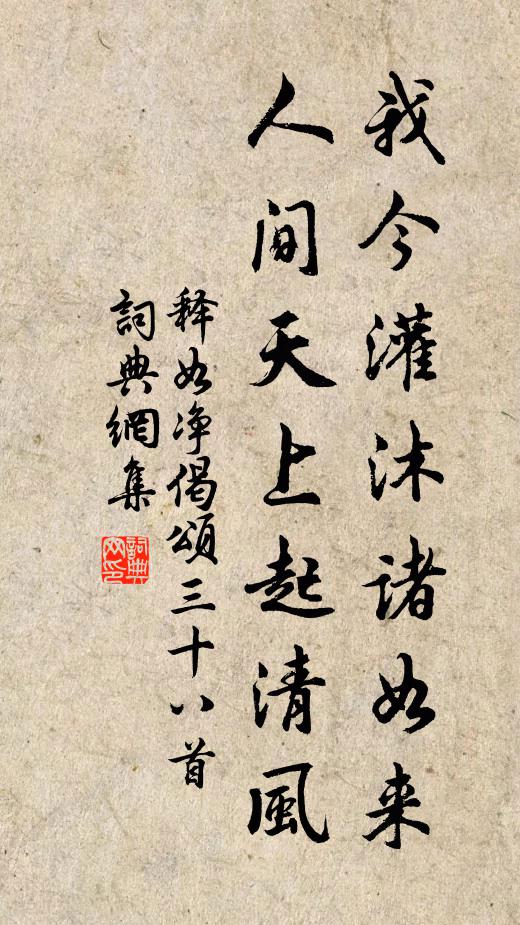 我今灌沐诸如来
人间天上起清風
释如净偈頌三十八首
詞典網集
詞典網印